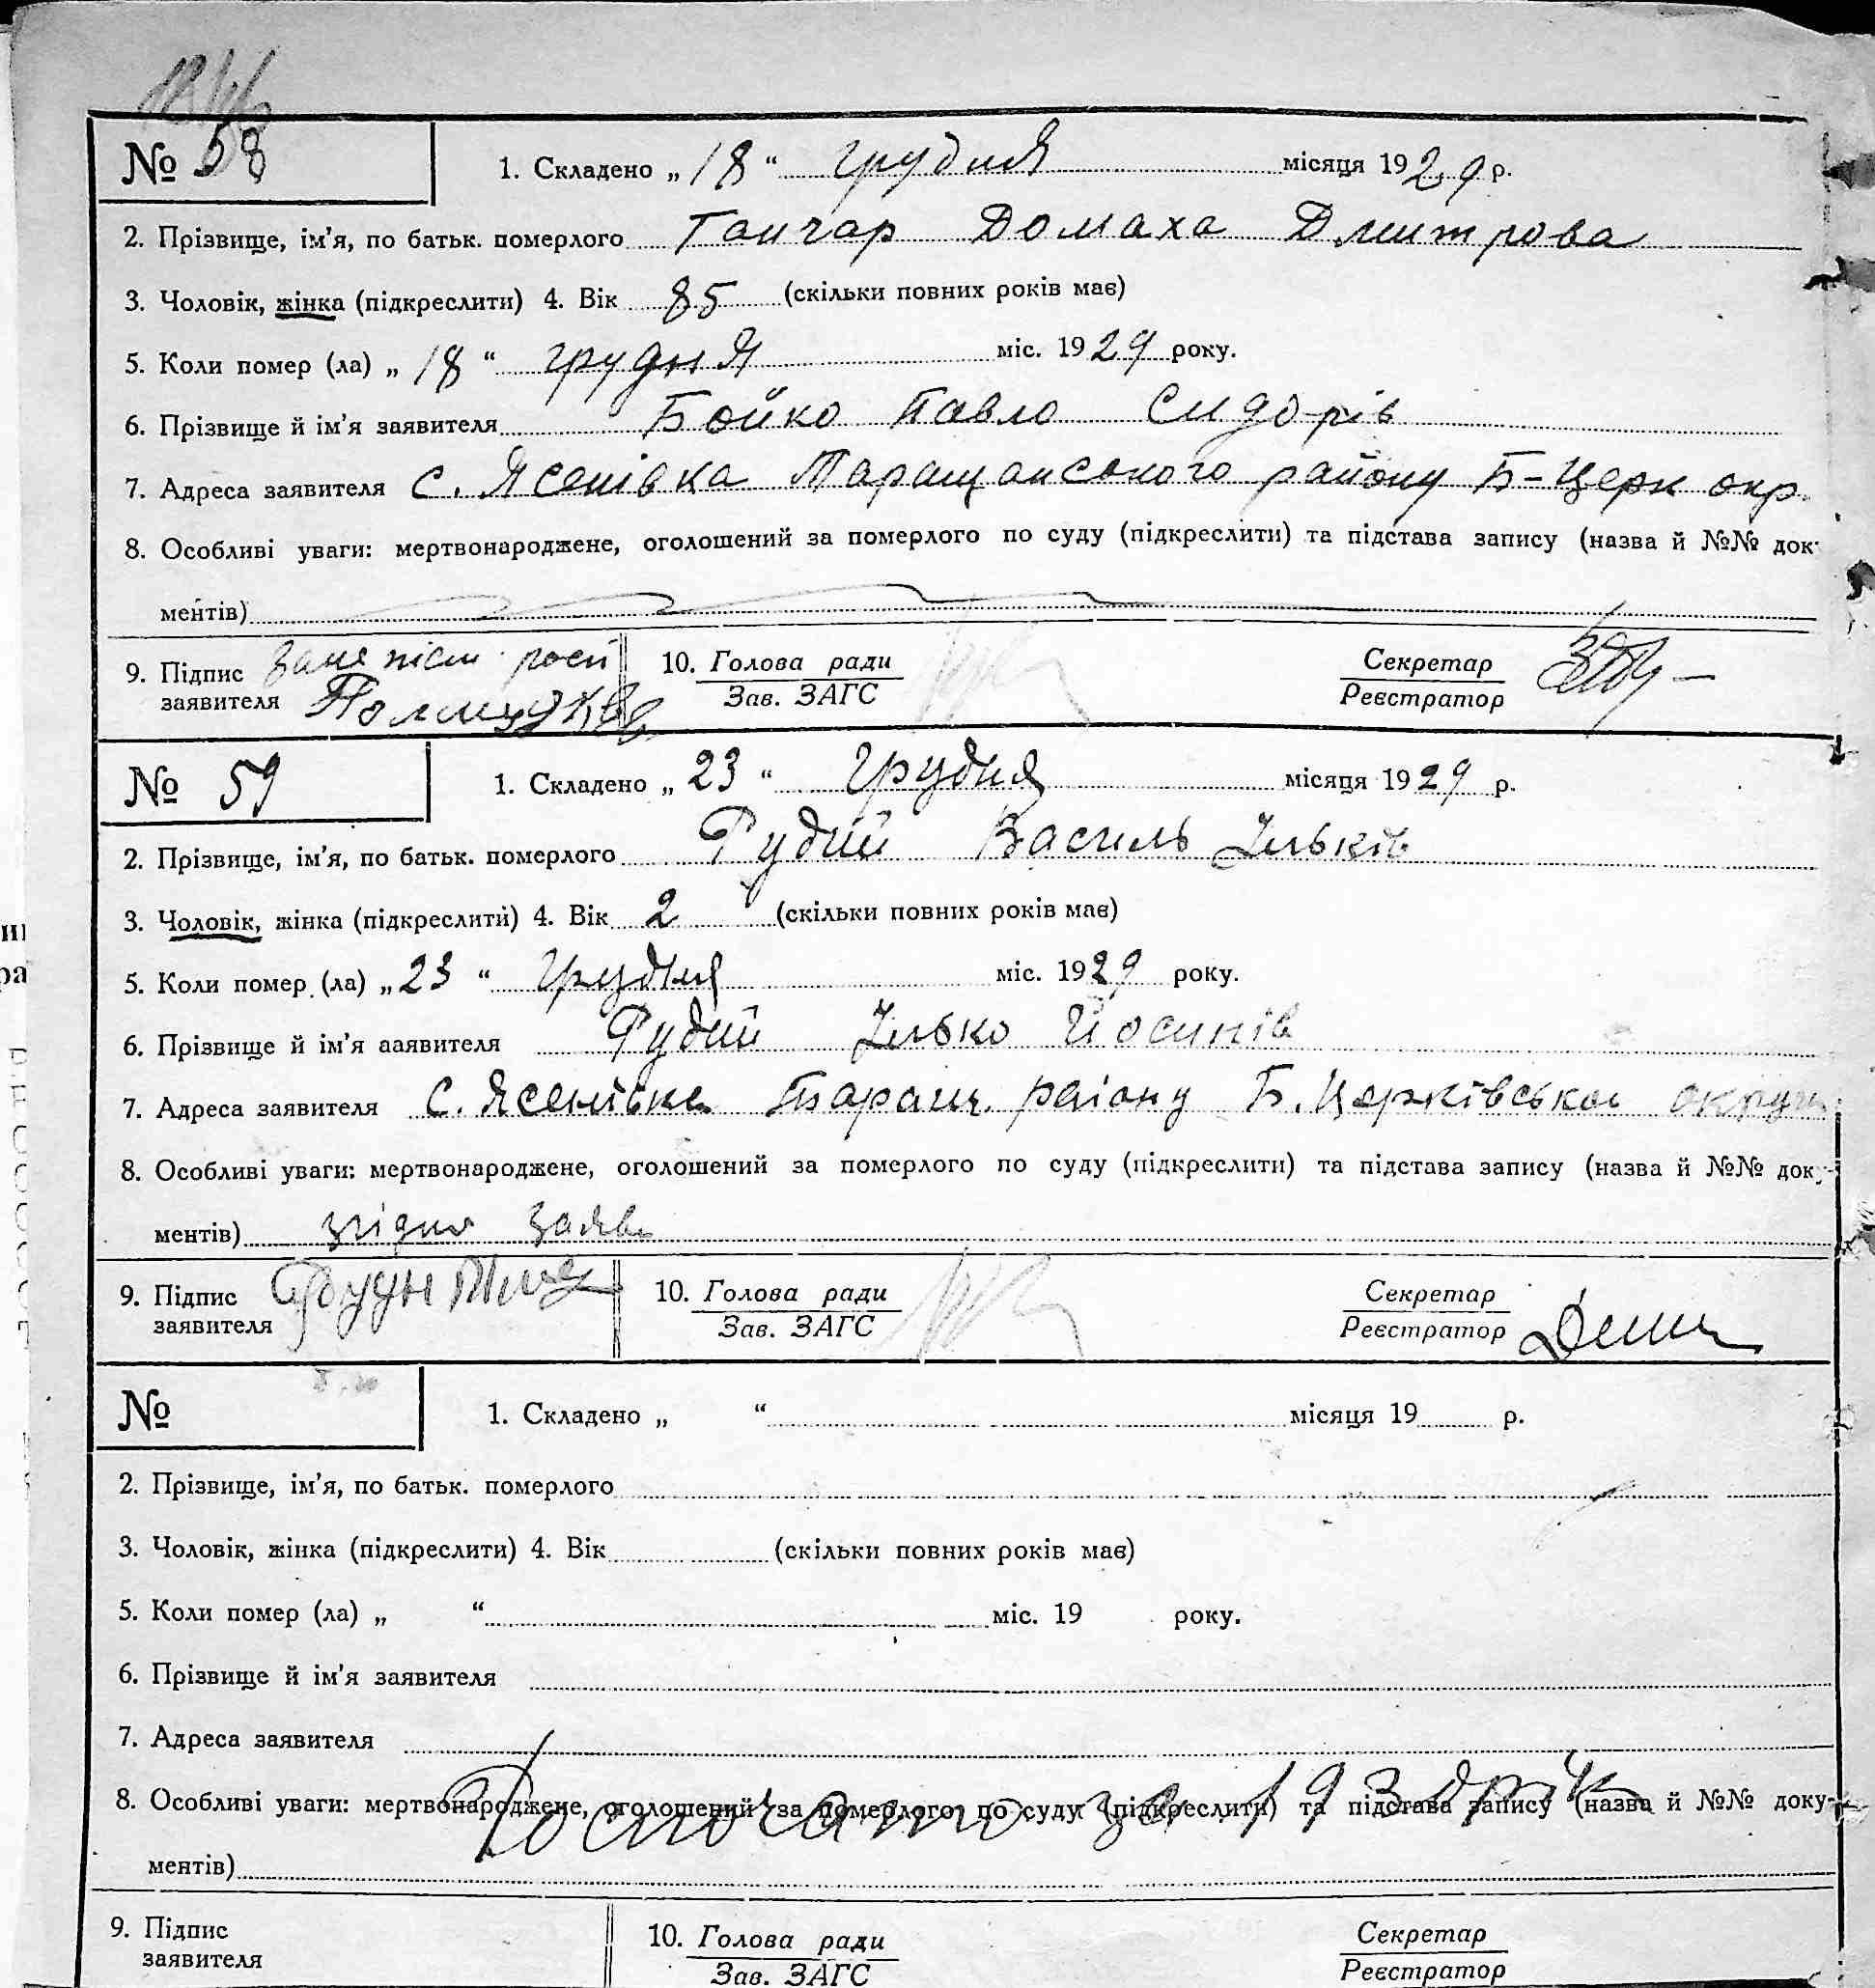 № 58 1. Складено „ 18 “ грудня місяця 1929 р.
2. Прізвище, ім’я, по батьк. померлого Гончар Домаха Дмитрова
3. Чоловік, жінка (підкреслити) 4. Вік 85 (скільки повних років має)
5. Коли помер (ла) „ 18 “ грудня міс. 1929 року.
6. Прізвище й ім’я заявителя Бойко Павло Сидорів
7. Адреса заявителя с. Ясенівка Таращанського району Б-Церк окр.
8. Особливі уваги: мертвонароджене, оголошений за померлого по суду (підкреслити) та підстава запису (назва й №№ док
ментів)
9. Підпис 10. Голова ради Секретар
заявителя Зав. ЗАГС Реєстратор
№ 59 1. Складено „ 23 “ грудня місяця 1929 р.
2. Прізвище, ім’я, по батьк. померлого Рудий Василь Ільків
3. Чоловік, жінка (підкреслити) 4. Вік 2 (скільки повних років має)
5. Коли помер (ла) „ 23 “ грудня міс. 1929 року.
6. Прізвище й ім’я ааявителя Рудий Ілько Йосипів
7. Адреса заявителя с. Ясенівка Таращ. району Б. Церківської округи
8. Особливі уваги: мертвонароджене, оголошений за померлого по суду (підкреслити) та підстава запису (назва й №№ док
ментів) згідно заяви
9. Підпис 10. Голова ради Секретар
заявителя Зав. ЗАГС Реєстратор
№ 1. Складено „ “ місяця 19 р.
2. Прізвище, ім’я, по батьк. померлого
3. Чоловік, жінка (підкреслити) 4. Вік (скільки повних років має)
5. Коли помер (ла) „ “ міс. 19 року.
6. Прізвище й ім’я заявителя
7. Адреса заявителя
Розпочато за 1930 рік
8. Особливі уваги: мертвонароджене, оголошений за померлого по суду (підкреслити) та підстава запису (назва й №№ доку-
ментів)
9. Підпис 10. Голова ради Секретар
заявителя Зав. ЗАГС Реєстратор